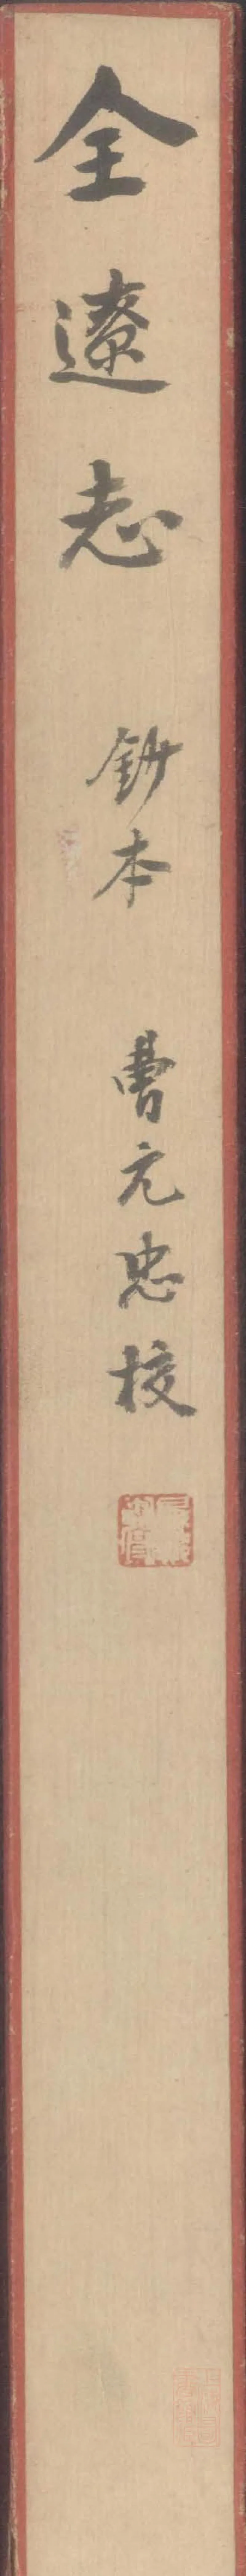 全遼志 鈔本 曹元忠校